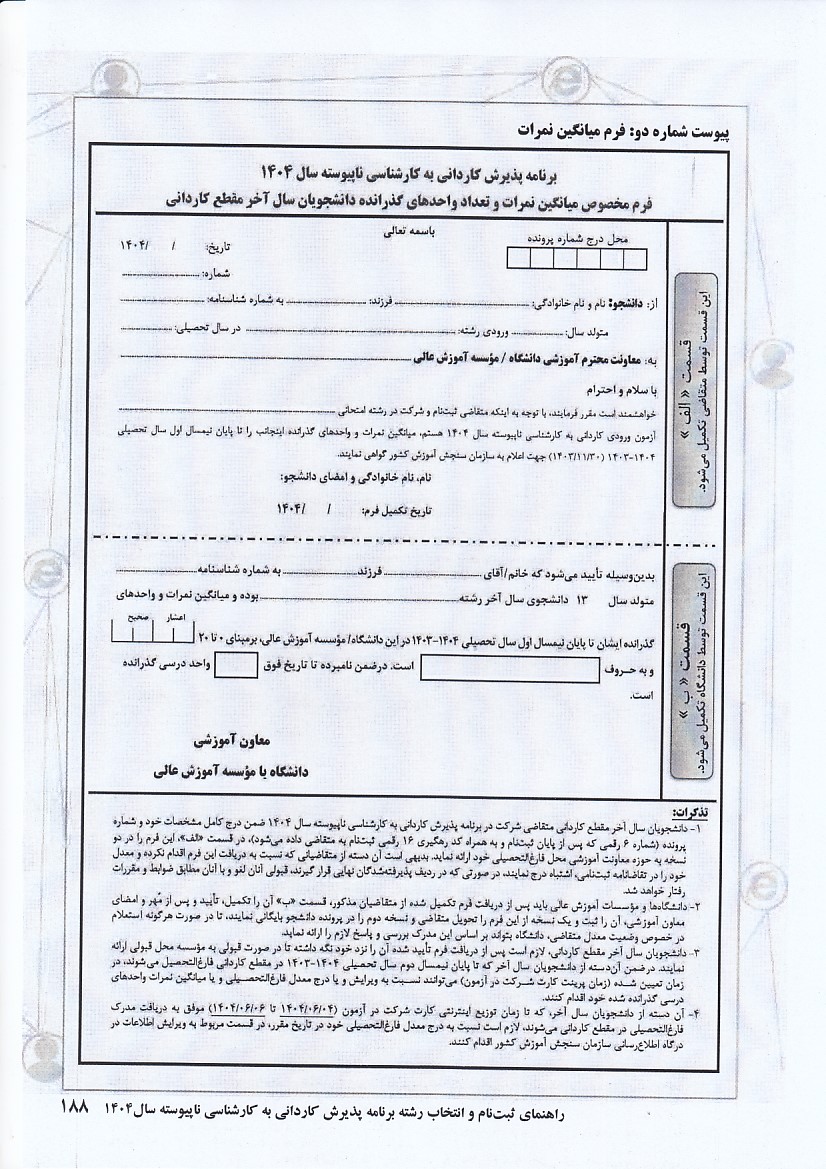 پیوست شماره دو: فرم میانگین نمرات
برنامه پذیرش کاردانی به کارشناسی ناپیوسته سال ۱۴۰۴
فرم مخصوص میانگین نمرات و تعداد واحدهای گذرانده دانشجویان سال آخر مقطع کاردانی
باسمه تعالی
محل درج شماره پرونده
تاریخ: / /۱۴۰۴
شماره:
این قسمت توسط متقاضی تکمیل می‌شود.
قسمت « الف »
از: دانشجو: نام و نام خانوادگی: فرزند: به شماره شناسنامه:
متولد سال: ورودی رشته: در سال تحصیلی:
به: معاونت محترم آموزشی دانشگاه / مؤسسه آموزش عالی
با سلام و احترام
خواهشمند است مقرر فرمایند، با توجه به اینکه متقاضی ثبت‌نام و شرکت در رشته امتحانی
آزمون ورودی کاردانی به کارشناسی ناپیوسته سال ۱۴۰۴ هستم، میانگین نمرات و واحدهای گذرانده اینجانب را تا پایان نیمسال اول سال تحصیلی
۱۴۰۴-۱۴۰۳ (۱۴۰۳/۱۱/۳۰) جهت اعلام به سازمان سنجش آموزش کشور گواهی نمایند.
نام، نام خانوادگی و امضای دانشجو:
تاریخ تکمیل فرم: / /۱۴۰۴
این قسمت توسط دانشگاه تکمیل می‌شود.
قسمت « ب »
بدین‌وسیله تأیید می‌شود که خانم/آقای فرزند به شماره شناسنامه
متولد سال ۱۳ دانشجوی سال آخر رشته بوده و میانگین نمرات و واحدهای
اعشار صحیح
گذرانده ایشان تا پایان نیمسال اول سال تحصیلی ۱۴۰۴-۱۴۰۳ در این دانشگاه/ مؤسسه آموزش عالی، برمبنای ۰ تا ۲۰
و به حروف است. درضمن نامبرده تا تاریخ فوق واحد درسی گذرانده
است.
معاون آموزشی
دانشگاه یا مؤسسه آموزش عالی
تذکرات:
۱- دانشجویان سال آخر مقطع کاردانی متقاضی شرکت در برنامه پذیرش کاردانی به کارشناسی ناپیوسته سال ۱۴۰۴ ضمن درج کامل مشخصات خود و شماره
پرونده (شماره ۶ رقمی که پس از پایان ثبت‌نام و به همراه کد رهگیری ۱۶ رقمی ثبت‌نام به متقاضی داده می‌شود)، در قسمت «الف»، این فرم را در دو
نسخه به حوزه معاونت آموزشی محل فارغ‌التحصیلی خود ارائه نماید. بدیهی است آن دسته از متقاضیانی که نسبت به دریافت این فرم اقدام نکرده و معدل
خود را در تقاضانامه ثبت‌نامی، اشتباه درج نمایند، در صورتی که در ردیف پذیرفته‌شدگان نهایی قرار گیرند، قبولی آنان لغو و با آنان مطابق ضوابط و مقررات
رفتار خواهد شد.
۲- دانشگاه‌ها و مؤسسات آموزش عالی باید پس از دریافت فرم تکمیل شده از متقاضیان مذکور، قسمت «ب» آن را تکمیل، تأیید و پس از مُهر و امضای
معاون آموزشی، آن را ثبت و یک نسخه از این فرم را تحویل متقاضی و نسخه دوم را در پرونده دانشجو بایگانی نمایند، تا در صورت هرگونه استعلام
در خصوص وضعیت معدل متقاضی، دانشگاه بتواند بر اساس این مدرک بررسی و پاسخ لازم را ارائه نماید.
۳- دانشجویان سال آخر مقطع کاردانی، لازم است پس از دریافت فرم تأیید شده آن را نزد خود نگه داشته تا در صورت قبولی به مؤسسه محل قبولی ارائه
نمایند. درضمن آن‌دسته از دانشجویان سال آخر که تا پایان نیمسال دوم سال تحصیلی ۱۴۰۴-۱۴۰۳ در مقطع کاردانی فارغ‌التحصیل می‌شوند، در
زمان تعیین شده (زمان پرینت کارت شرکت در آزمون) می‌توانند نسبت به ویرایش و یا درج معدل فارغ‌التحصیلی و یا میانگین نمرات واحدهای
درسی گذرانده شده خود اقدام کنند.
۴- آن دسته از دانشجویان سال آخر، که تا زمان توزیع اینترنتی کارت شرکت در آزمون (۱۴۰۴/۰۶/۰۴ تا ۱۴۰۴/۰۶/۰۶) موفق به دریافت مدرک
فارغ‌التحصیلی در مقطع کاردانی می‌شوند، لازم است نسبت به درج معدل فارغ‌التحصیلی خود در تاریخ مقرر، در قسمت مربوط به ویرایش اطلاعات در
درگاه اطلاع‌رسانی سازمان سنجش آموزش کشور اقدام کنند.
راهنمای ثبت‌نام و انتخاب رشته برنامه پذیرش کاردانی به کارشناسی ناپیوسته سال۱۴۰۴ ۱۸۸